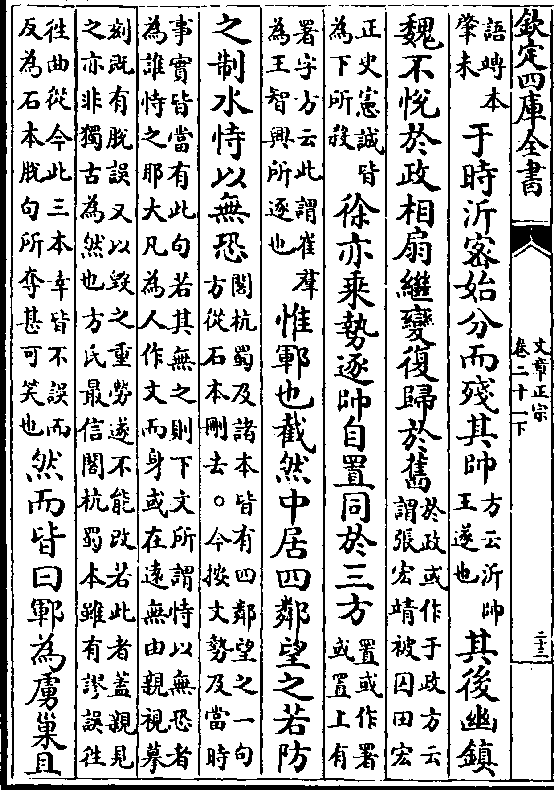 欽定四庫全書
文章正宗
卷二十一下
語轉本
肇未
于時沂密始分而殘其帥
方云沂帥
王遂也
其後幽鎮
魏不悅於政相扇繼變復歸於舊
於政或作于政方云
謂張宏靖被囚田宏
正史憲誠皆
為下所殺
徐亦乘勢逐帥自置同於三方
置或作署
或置上有
署字方云此謂崔羣
為王智興所逐也
惟鄆也截然中居四鄰望之若防
之制水恃以無恐
閣杭蜀及諸本皆有四鄰望之一句
方從石本刪去。今按文勢及當時
事實皆當有此句若其無之則下文所謂恃以無恐者
為誰恃之耶大凡為人作文而身或在逺無由親視摹
刻既有脫誤又以毀之重勞遂不能改若此者蓋親見
之亦非獨古為然也方氏最信閣杭蜀本雖有謬誤徃
徃曲從今此三本幸皆不誤而
反為石本脫句所奪甚可笑也
然而皆曰鄆為虜巢且